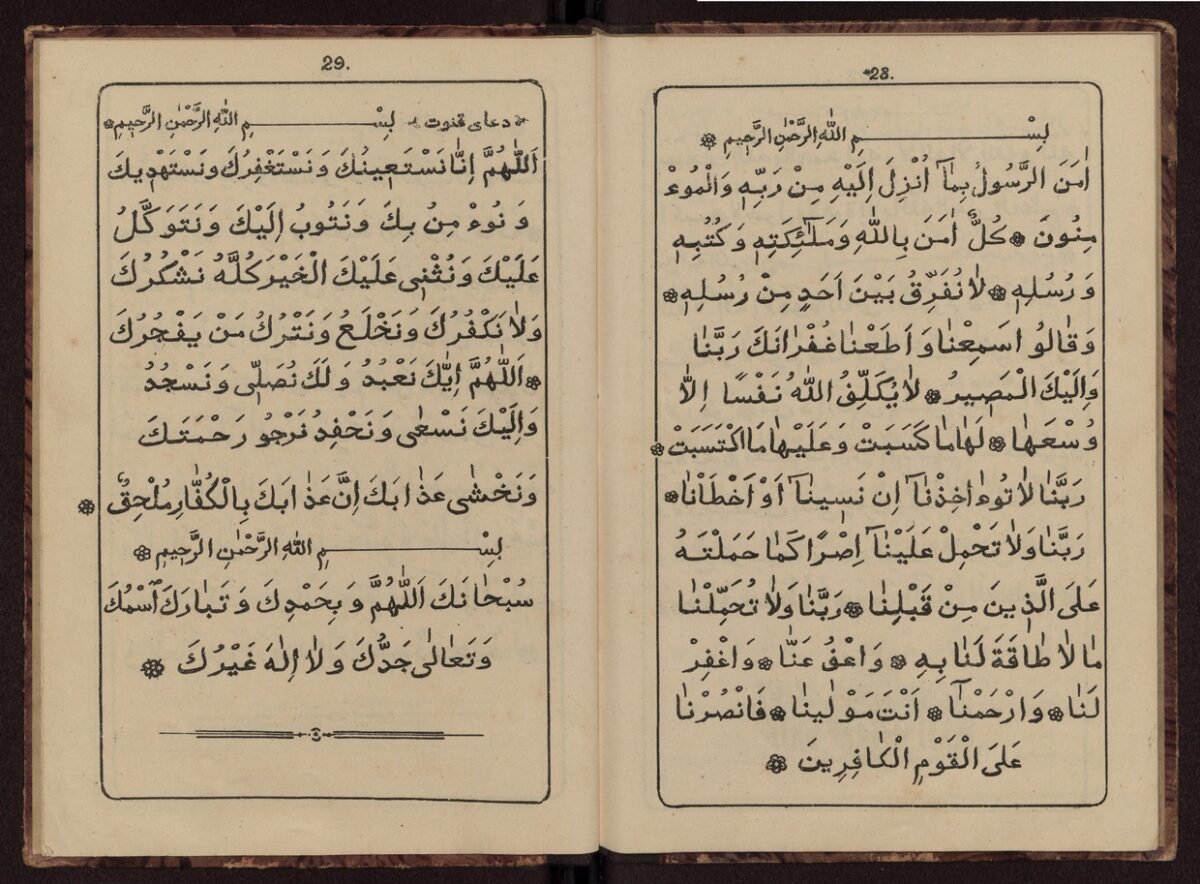 28.
بِسْـــــــــمِ اللّٰهِ الرَّحْمٰنِ الرَّحٖيمِ ۞
اٰمَنَ الرَّسُولُ بِمَٓا اُنْزِلَ اِلَيْهِ مِنْ رَبِّهٖ وَالْمُوءْ
مِنُونَ ۞ كُلٌّ اٰمَنَ بِاللّٰهِ وَمَلٰٓئِكَتِهٖ وَكُتُبِهٖ
وَرُسُلِهٖ ۞ لَا نُفَرِّقُ بَيْنَ اَحَدٍ مِنْ رُسُلِهٖ ۞
وَقَالُو اسَمِعْنَا وَاَطَعْنَا غُفْرَانَكَ رَبَّنَا
وَاِلَيْكَ الْمَصٖيرُ ۞ لَا يُكَلِّفُ اللّٰهُ نَفْسًا اِلَّا
وُسْعَهَا ۞ لَهَا مَا كَسَبَتْ وَعَلَيْهَا مَا اكْتَسَبَتْ ۞
رَبَّنَا لَا تُوءَاخِذْنَٓا اِنْ نَسٖينَٓا اَوْ اَخْطَاْنَا ۞
رَبَّنَا وَلَا تَحْمِلْ عَلَيْنَٓا اِصْرًا كَمَا حَمَلْتَهُ
عَلَى الَّذٖينَ مِنْ قَبْلِنَا ۞ رَبَّنَا وَلَا تُحَمِّلْنَا
مَا لَا طَاقَةَ لَنَا بِهٖ ۞ وَاعْفُ عَنَّا ۞ وَاغْفِرْ
لَنَا ۞ وَارْحَمْنَٓا ۞ اَنْتَ مَوْلٰينَا ۞ فَانْصُرْنَا
عَلَى الْقَوْمِ الْكَافِرٖينَ ۞
29.
دعاى قنوت بِسْـــــــــمِ اللّٰهِ الرَّحْمٰنِ الرَّحٖيمِ ۞
اَللّٰهُمَّ اِنَّا نَسْتَعٖينُكَ وَنَسْتَغْفِرُكَ وَنَسْتَهْدٖيكَ
وَنُوءْمِنُ بِكَ وَنَتُوبُ اِلَيْكَ وَنَتَوَكَّلُ
عَلَيْكَ وَنُثْنٖى عَلَيْكَ الْخَيْرَ كُلَّهُ نَشْكُرُكَ
وَلَا نَكْفُرُكَ وَنَخْلَعُ وَنَتْرُكُ مَنْ يَفْجُرُكَ
۞ اَللّٰهُمَّ اِيَّكَ نَعْبُدُ وَلَكَ نُصَلّٖى وَنَسْجُدُ
وَاِلَيْكَ نَسْعٰى وَنَحْفِدُ نَرْجُو رَحْمَتَكَ
وَنَخْشٰى عَذَابَكَ اِنَّ عَذَابَكَ بِالْكُفَّارِ مُلْحِقٌ ۞
بِسْـــــــــمِ اللّٰهِ الرَّحْمٰنِ الرَّحٖيمِ ۞
سُبْحَانَكَ اَللّٰهُمَّ وَبِحَمْدِكَ وَتَبَارَكَ ٱسْمُكَ
وَتَعَالٰى جَدُّكَ وَلَا اِلٰهَ غَيْرُكَ ۞